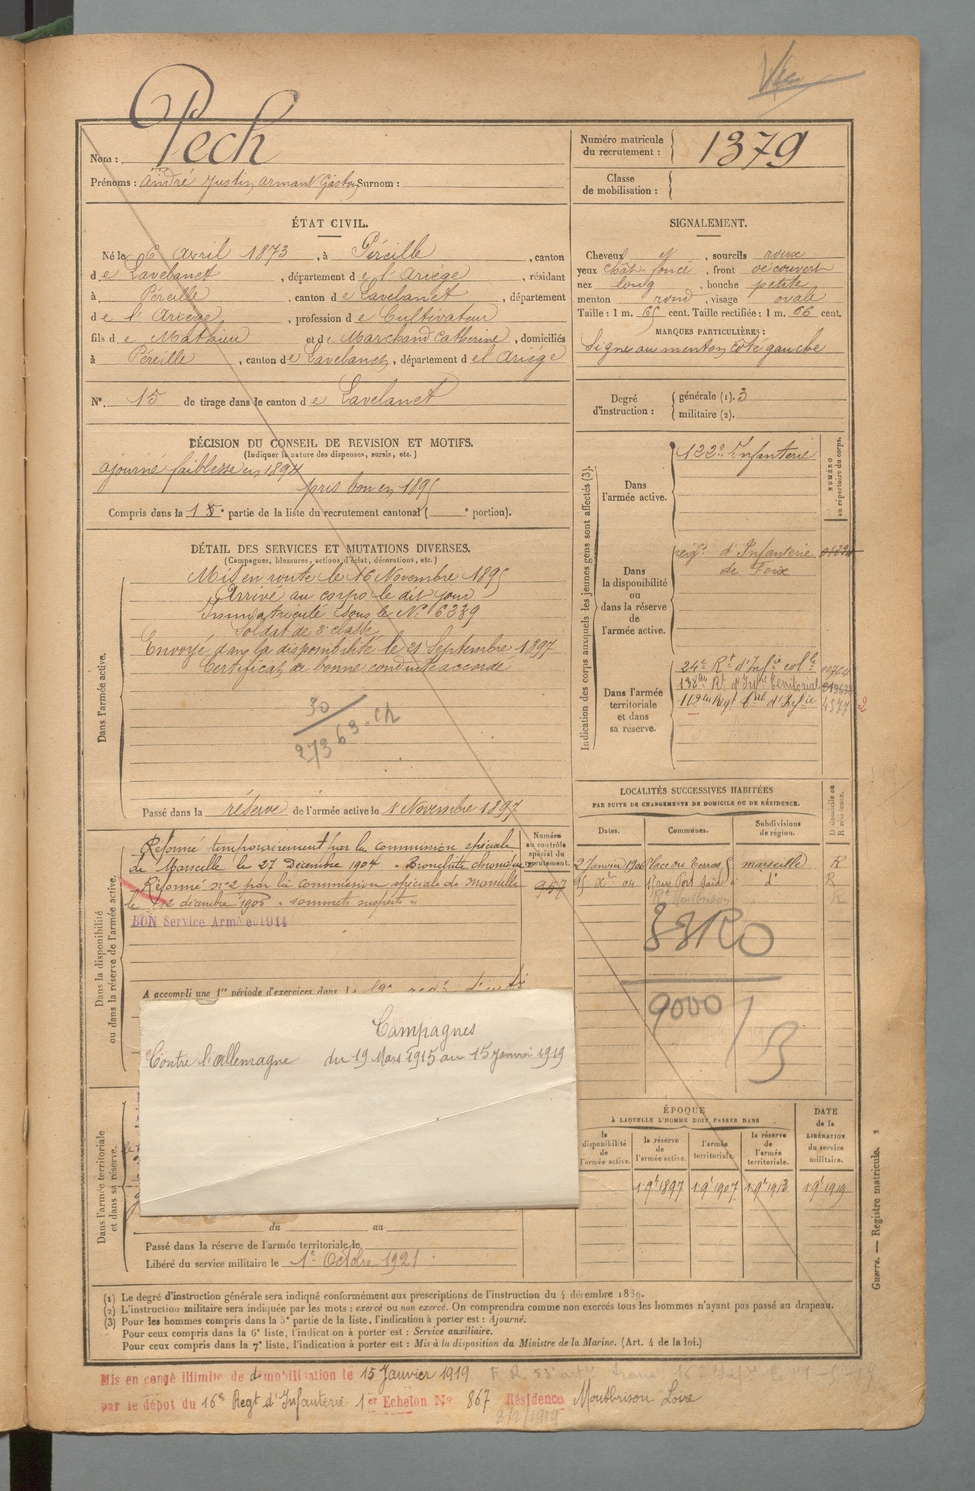 Vu
Pech
Nom :
Prénoms : André Justin Armant Gaston Surnom :
Numéro matricule du recrutement : 1379
Classe de mobilisation :
ÉTAT CIVIL.
Né le 6 Avril 1873, à Péreille, canton
de Lavelanet, département de l'Ariège, résidant
à Péreille, canton de Lavelanet, département
de l'Ariège, profession de Cultivateur
fils de Mathieu et de Marchand Catherine, domiciliés
à Péreille, canton de Lavelanet, département de l'Ariège
N° 15 de tirage dans le canton de Lavelanet
SIGNALEMENT.
Cheveux et, sourcils roux
yeux chât. foncé, front découvert
nez long, bouche petite
menton rond, visage ovale
Taille : 1 m. 65 cent. Taille rectifiée : 1 m. 66 cent.
MARQUES PARTICULIÈRES :
Signe au menton côté gauche
Degré d'instruction : générale (1). 3
militaire (2).
DÉCISION DU CONSEIL DE REVISION ET MOTIFS.
(Indiquer la nature des dispenses, sursis, etc.)
ajourné faiblesse en 1894
pris bon en 1895
Compris dans la 1e partie de la liste du recrutement cantonal ( e portion).
DÉTAIL DES SERVICES ET MUTATIONS DIVERSES.
(Campagnes, blessures, actions d'éclat, décorations, etc.)
Dans l'armée active.
Mis en route le 16 Novembre 1895
Arrivé au corps le dit jour
Immatriculé sous le N° 6339
Soldat de 2e classe
Envoyé dans la disponibilité le 21 Septembre 1897
Certificat de bonne conduite accordé
30
273
Passé dans la réserve de l'armée active le 1 Novembre 1897
Indication des corps auxquels les jeunes gens sont affectés (3).
NUMÉRO au répertoire du corps.
Dans l'armée active.
122e Infanterie
Dans la disponibilité ou dans la réserve de l'armée active.
régt d'Infanterie
de Foix
Dans l'armée territoriale et dans sa réserve.
24e Rt d'Infie colle
138e Rt d'Infie territorial
112e Regt tal d'Infie 4577 2
Dans la disponibilité ou dans la réserve de l'armée active.
Numéro au contrôle spécial du recrutement.
Réformé temporairement par la commission spéciale
de Marseille le 27 Décembre 1904 "Bronchite chronique"
Réformé n°2 par la commission spéciale de Marseille 957
le décembre 1905 "sommets suspects"
BON Service Armé 1914
A accompli une 1re période d'exercices dans l
LOCALITÉS SUCCESSIVES HABITÉES
PAR SUITE DE CHANGEMENTS DE DOMICILE OU DE RÉSIDENCE.
Dates. Communes. Subdivisions de région. D domicile ou R résidence.
2 Janvier 1900 marseille R
rue Port Saïd d° R
Montbrison R
9000
Campagnes
Contre l'allemagne du 19 Mars 1915 au 15 janvier 1919
ÉPOQUE
À LAQUELLE L'HOMME DOIT PASSER DANS
la disponibilité de l'armée active. la réserve de l'armée active. l'armée territoriale. la réserve de l'armée territoriale. DATE de la LIBÉRATION du service militaire.
1 9e 1897 1 9e 1907 1 9e 1913 1 9e 1919
Dans l'armée territoriale et dans sa réserve.
du au
Passé dans la réserve de l'armée territoriale le
Libéré du service militaire le 1e Octobre 1921
Guerre. — Registre matricule.
(1) Le degré d'instruction générale sera indiqué conformément aux prescriptions de l'instruction du 4 décembre 1889.
(2) L'instruction militaire sera indiquée par les mots : exercé ou non exercé. On comprendra comme non exercés tous les hommes n'ayant pas passé au drapeau.
(3) Pour les hommes compris dans la 5e partie de la liste, l'indication à porter est : Ajourné.
Pour ceux compris dans la 6e liste, l'indication à porter est : Service auxiliaire.
Pour ceux compris dans la 7e liste, l'indication à porter est : Mis à la disposition du Ministre de la Marine. (Art. 4 de la loi.)
Mis en congé illimité de démobilisation le 15 Janvier 1919
par le dépôt du 16e Regt d'Infanterie 1er Echelon N° 867 Résidence Montbrison Loire
8/2/1919